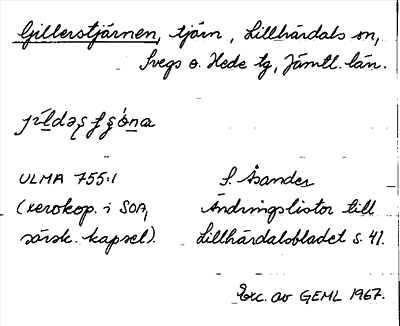 Gillerstjärnen, tjärn, Lillhärdals sn,
Svegs o. Hede tg, Jämtl. län.
ULMA 755:1
S. Åsander
(xerokop. i SOA,
Ändringslistor till
särsk. kapsel).
Lillhärdalsbladet s. 41.
Exc. av GEML 1967.